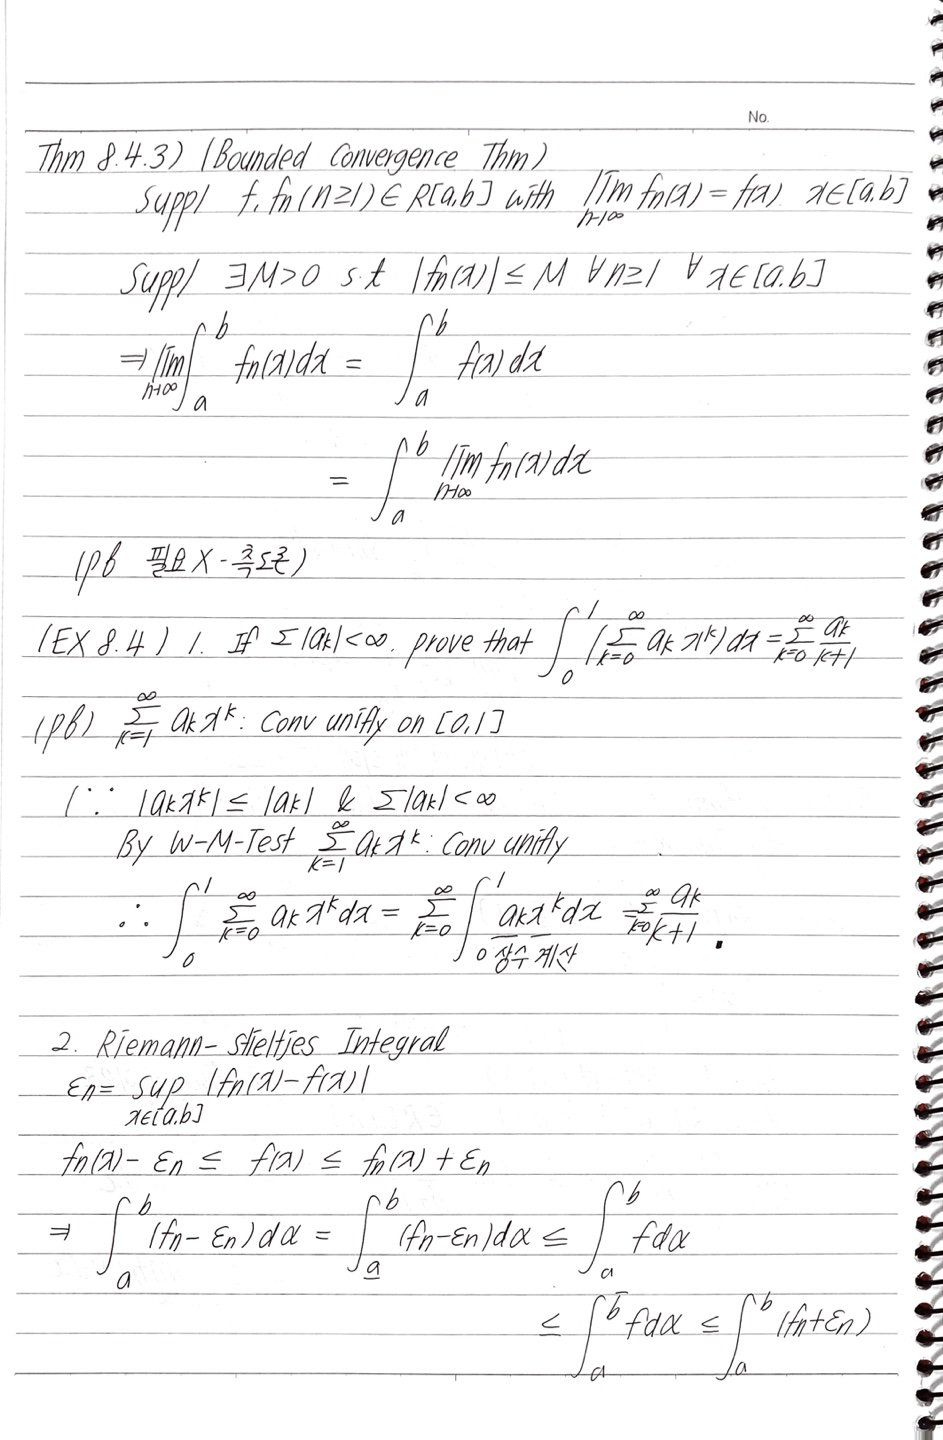 No.
Thm 8.4.3) (Bounded Convergence Thm)
Supp) f, fn(n≥1) ∈ R[a,b] with lim n→∞ fn(x) = f(x) x∈[a,b]
Supp) ∃M>0 s.t |fn(x)| ≤ M ∀n≥1 ∀ x∈[a,b]
⇒ lim n→∞ ∫_a^b fn(x)dx = ∫_a^b f(x)dx
= ∫_a^b lim n→∞ fn(x)dx
(pf 필요X - 측도론)
(EX 8.4) 1. If Σ|ak|<∞. prove that ∫_0^1 (Σ_{k=0}^∞ ak x^k)dx = Σ_{k=0}^∞ ak/k+1
(pf) Σ_{k=1}^∞ ak x^k : Conv unifly on [0,1]
(∵ |ak x^k| ≤ |ak| & Σ|ak|<∞
By W-M-Test Σ_{k=1}^∞ ak x^k : Conv unifly
∴ ∫_0^1 Σ_{k=0}^∞ ak x^k dx = Σ_{k=0}^∞ ∫_0^1 ak x^k dx = Σ_{k=0}^∞ ak/k+1 .
상수 계산
2. Riemann-stieltjes Integral
εn = sup x∈[a,b] |fn(x)-f(x)|
fn(x) - εn ≤ f(x) ≤ fn(x) + εn
⇒ ∫_a^b (fn - εn)dα = ∫_a̲^b (fn-εn)dα ≤ ∫_a^b fdα
≤ ∫_a^b̅ fdα ≤ ∫_a^b (fn+εn)